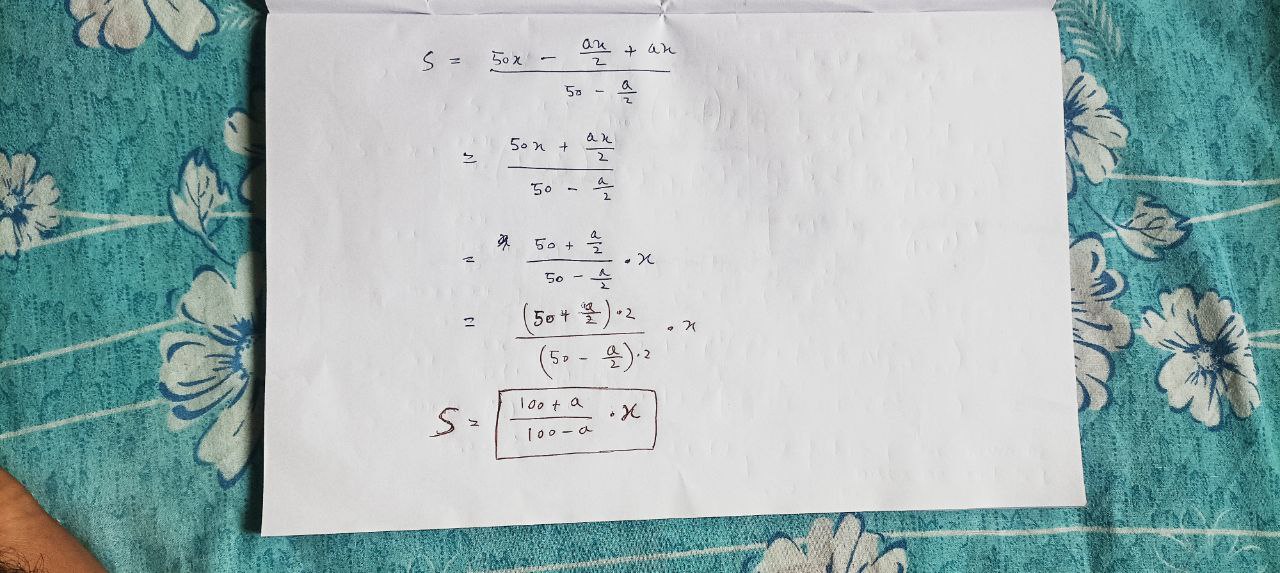 S = (50x - ax/2 + ax) / (50 - a/2)
= (50x + ax/2) / (50 - a/2)
= (50 + a/2) / (50 - a/2) · x
= ((50 + a/2) · 2) / ((50 - a/2) · 2) · x
S = (100 + a) / (100 - a) · x